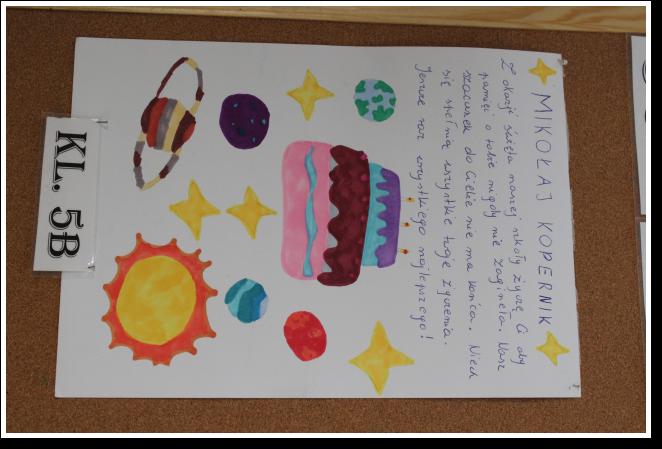 MIKOŁAJ KOPERNIK
Z okazji święta naszej szkoły życzę Ci aby
pamięć o tobie nigdy nie zaginęła. Nasz
szacunek do Ciebie nie ma końca. Niech
się spełnią wszystkie twoje życzenia.
Jeszcze raz wszystkiego najlepszego!
KL. 5B